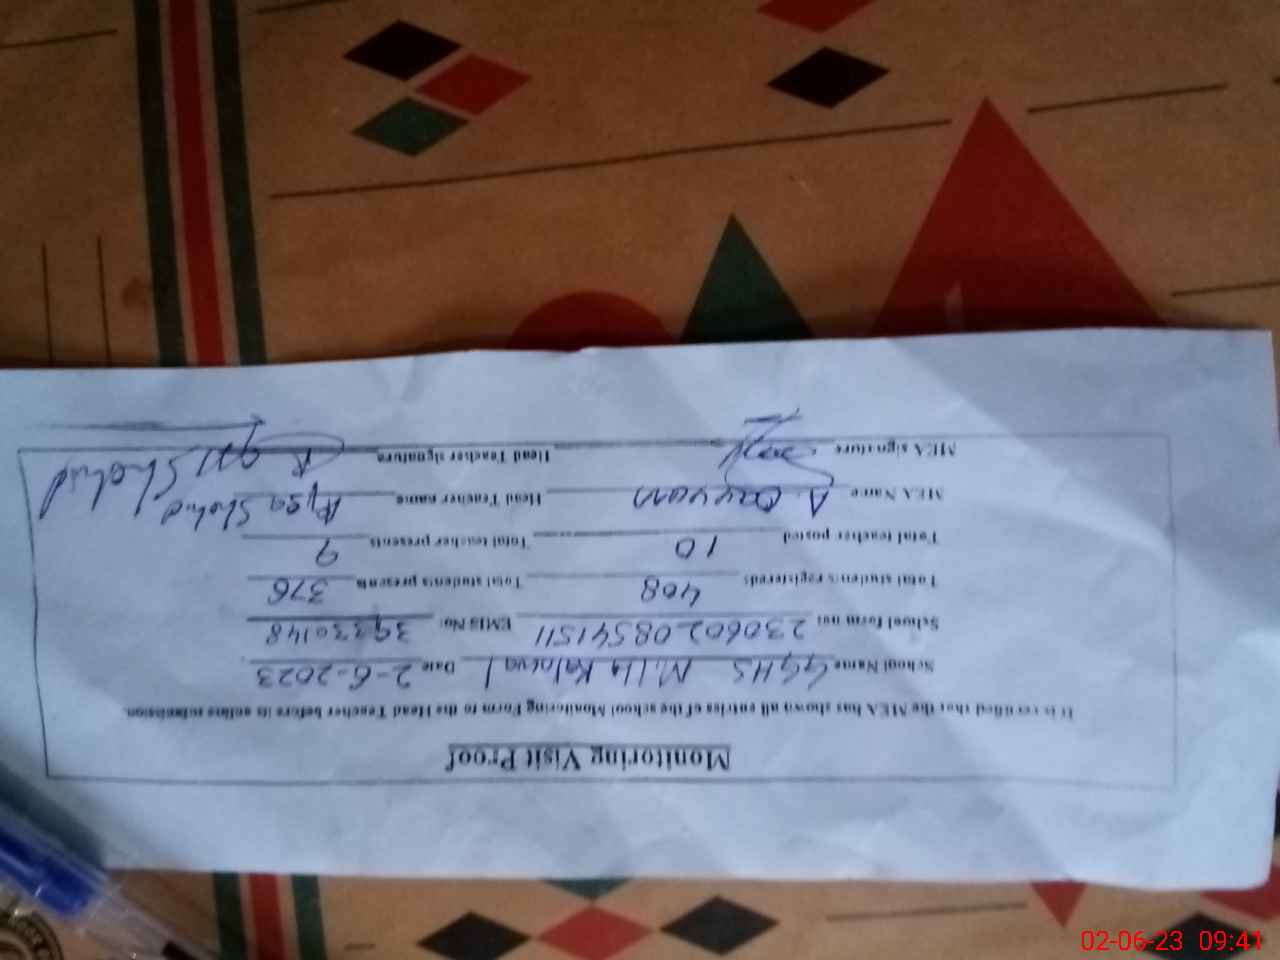 Monitoring Visit Proof
It is verified that the MEA has shown all entries of the school Monitoring Form to the Head Teacher before its online submission.
School Name GGHS Milla Kalowal Date 2-6-2023
School form no: 23060208541511 EMIS No: 39330148
Total students registered: 408 Total students presents 376
Total teacher posted 10 Total teacher presents 9
MEA Name A. Qayyum Head Teacher name Shahid
MEA signature Head Teacher signature Shahid
02-06-23 09:41